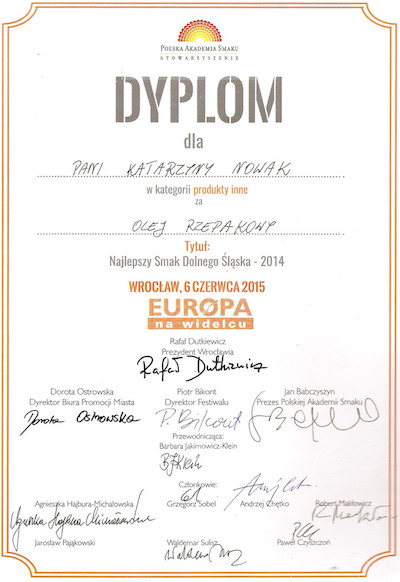 POLSKA AKADEMIA SMAKU
STOWARZYSZENIE
DYPLOM
dla
PANI KATARZYNY NOWAK
w kategorii produkty inne
za
OLEJ RZEPAKOWY
Tytuł:
Najlepszy Smak Dolnego Śląska - 2014
WROCŁAW, 6 CZERWCA 2015
EUROPA
na widelcu
Rafał Dutkiewicz
Prezydent Wrocławia
Rafał Dutkiewicz
Dorota Ostrowska Piotr Bikont Jan Babczyszyn
Dyrektor Biura Promocji Miasta Dyrektor Festiwalu Prezes Polskiej Akademii Smaku
Dorota Ostrowska P. Bikont
Przewodnicząca:
Barbara Jakimowicz-Klein
BJKlein
Członkowie:
Agnieszka Hajbura-Michalowska Grzegorz Sobel Andrzej Krętko Robert Makłowicz
Jarosław Pająkowski Waldemar Sulisz Paweł Czyszczoń